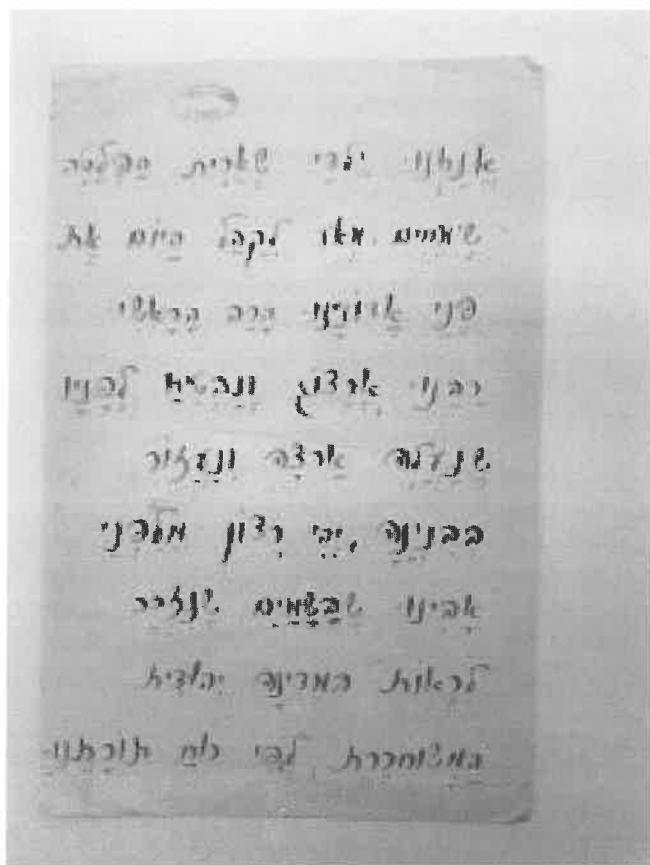 אֲנַחְנוּ יַלְדֵי שְׁאֵרִית הַפְּלֵטָה
שְׂמֵחִים מְאֹד לְקַבֵּל הַיּוֹם אֶת
פְּנֵי אֲדוֹנֵנוּ הָרַב הָרָאשִׁי
רַבֵּנוּ
שֶׁנַּעֲלֶה אַרְצָה וְנַעֲזוֹר
בְּבִנְיָנָהּ, יְהִי רָצוֹן מִלִּפְנֵי
אָבִינוּ שֶׁבַּשָּׁמַיִם שֶׁנִּזְכֶּה
לִרְאוֹת הַמְּדִינָה יְהוּדִית
הַמְשׁוּחְרֶרֶת לְפִי רוּחַ תּוֹרָתֵנוּ